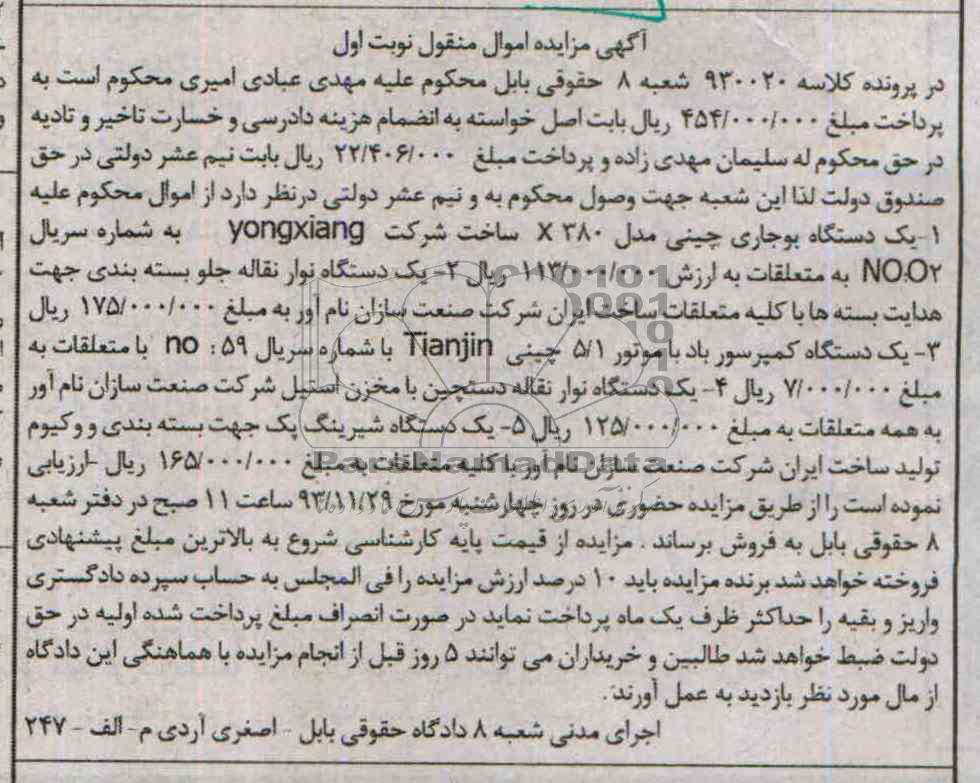 آگهی مزایده اموال منقول نوبت اول
در پرونده کلاسه ۹۳۰۰۲۰ شعبه ۸ حقوقی بابل محکوم علیه مهدی عبادی امیری محکوم است به
پرداخت مبلغ ۴۵۴/۰۰۰/۰۰۰ ریال بابت اصل خواسته به انضمام هزینه دادرسی و خسارت تاخیر و تادیه
در حق محکوم له سلیمان مهدی زاده و پرداخت مبلغ ۲۲/۴۰۶/۰۰۰ ریال بابت نیم عشر دولتی در حق
صندوق دولت لذا این شعبه جهت وصول محکوم به و نیم عشر دولتی درنظر دارد از اموال محکوم علیه
۱-یک دستگاه بوجاری چینی مدل X ۳۸۰ ساخت شرکت yongxiang به شماره سریال
NO.O۲ به متعلقات به ارزش ۱۱۳/۰۰۰/۰۰۰ ریال ۲- یک دستگاه نوار نقاله جلو بسته بندی جهت
هدایت بسته ها با کلیه متعلقات ساخت ایران شرکت صنعت سازان نام آور به مبلغ ۱۷۵/۰۰۰/۰۰۰ ریال
۳- یک دستگاه کمپرسور باد با موتور ۵/۱ چینی Tianjin با شماره سریال ۵۹ : no با متعلقات به
مبلغ ۷/۰۰۰/۰۰۰ ریال ۴- یک دستگاه نوار نقاله دستچین با مخزن استیل شرکت صنعت سازان نام آور
به همه متعلقات به مبلغ ۱۲۵/۰۰۰/۰۰۰ ریال ۵- یک دستگاه شیرینگ پک جهت بسته بندی و وکیوم
تولید ساخت ایران شرکت صنعت سازان نام آور با کلیه متعلقات به مبلغ ۱۶۵/۰۰۰/۰۰۰ ریال -ارزیابی
نموده است را از طریق مزایده حضوری در روز چهارشنبه مورخ ۹۳/۱۱/۲۹ ساعت ۱۱ صبح در دفتر شعبه
۸ حقوقی بابل به فروش برساند . مزایده از قیمت پایه کارشناسی شروع به بالاترین مبلغ پیشنهادی
فروخته خواهد شد برنده مزایده باید ۱۰ درصد ارزش مزایده را فی المجلس به حساب سپرده دادگستری
واریز و بقیه را حداکثر ظرف یک ماه پرداخت نماید در صورت انصراف مبلغ پرداخت شده اولیه در حق
دولت ضبط خواهد شد طالبین و خریداران می توانند ۵ روز قبل از انجام مزایده با هماهنگی این دادگاه
از مال مورد نظر بازدید به عمل آورند.
اجرای مدنی شعبه ۸ دادگاه حقوقی بابل - اصغری آردی م- الف - ۲۴۷
ParsNamadData